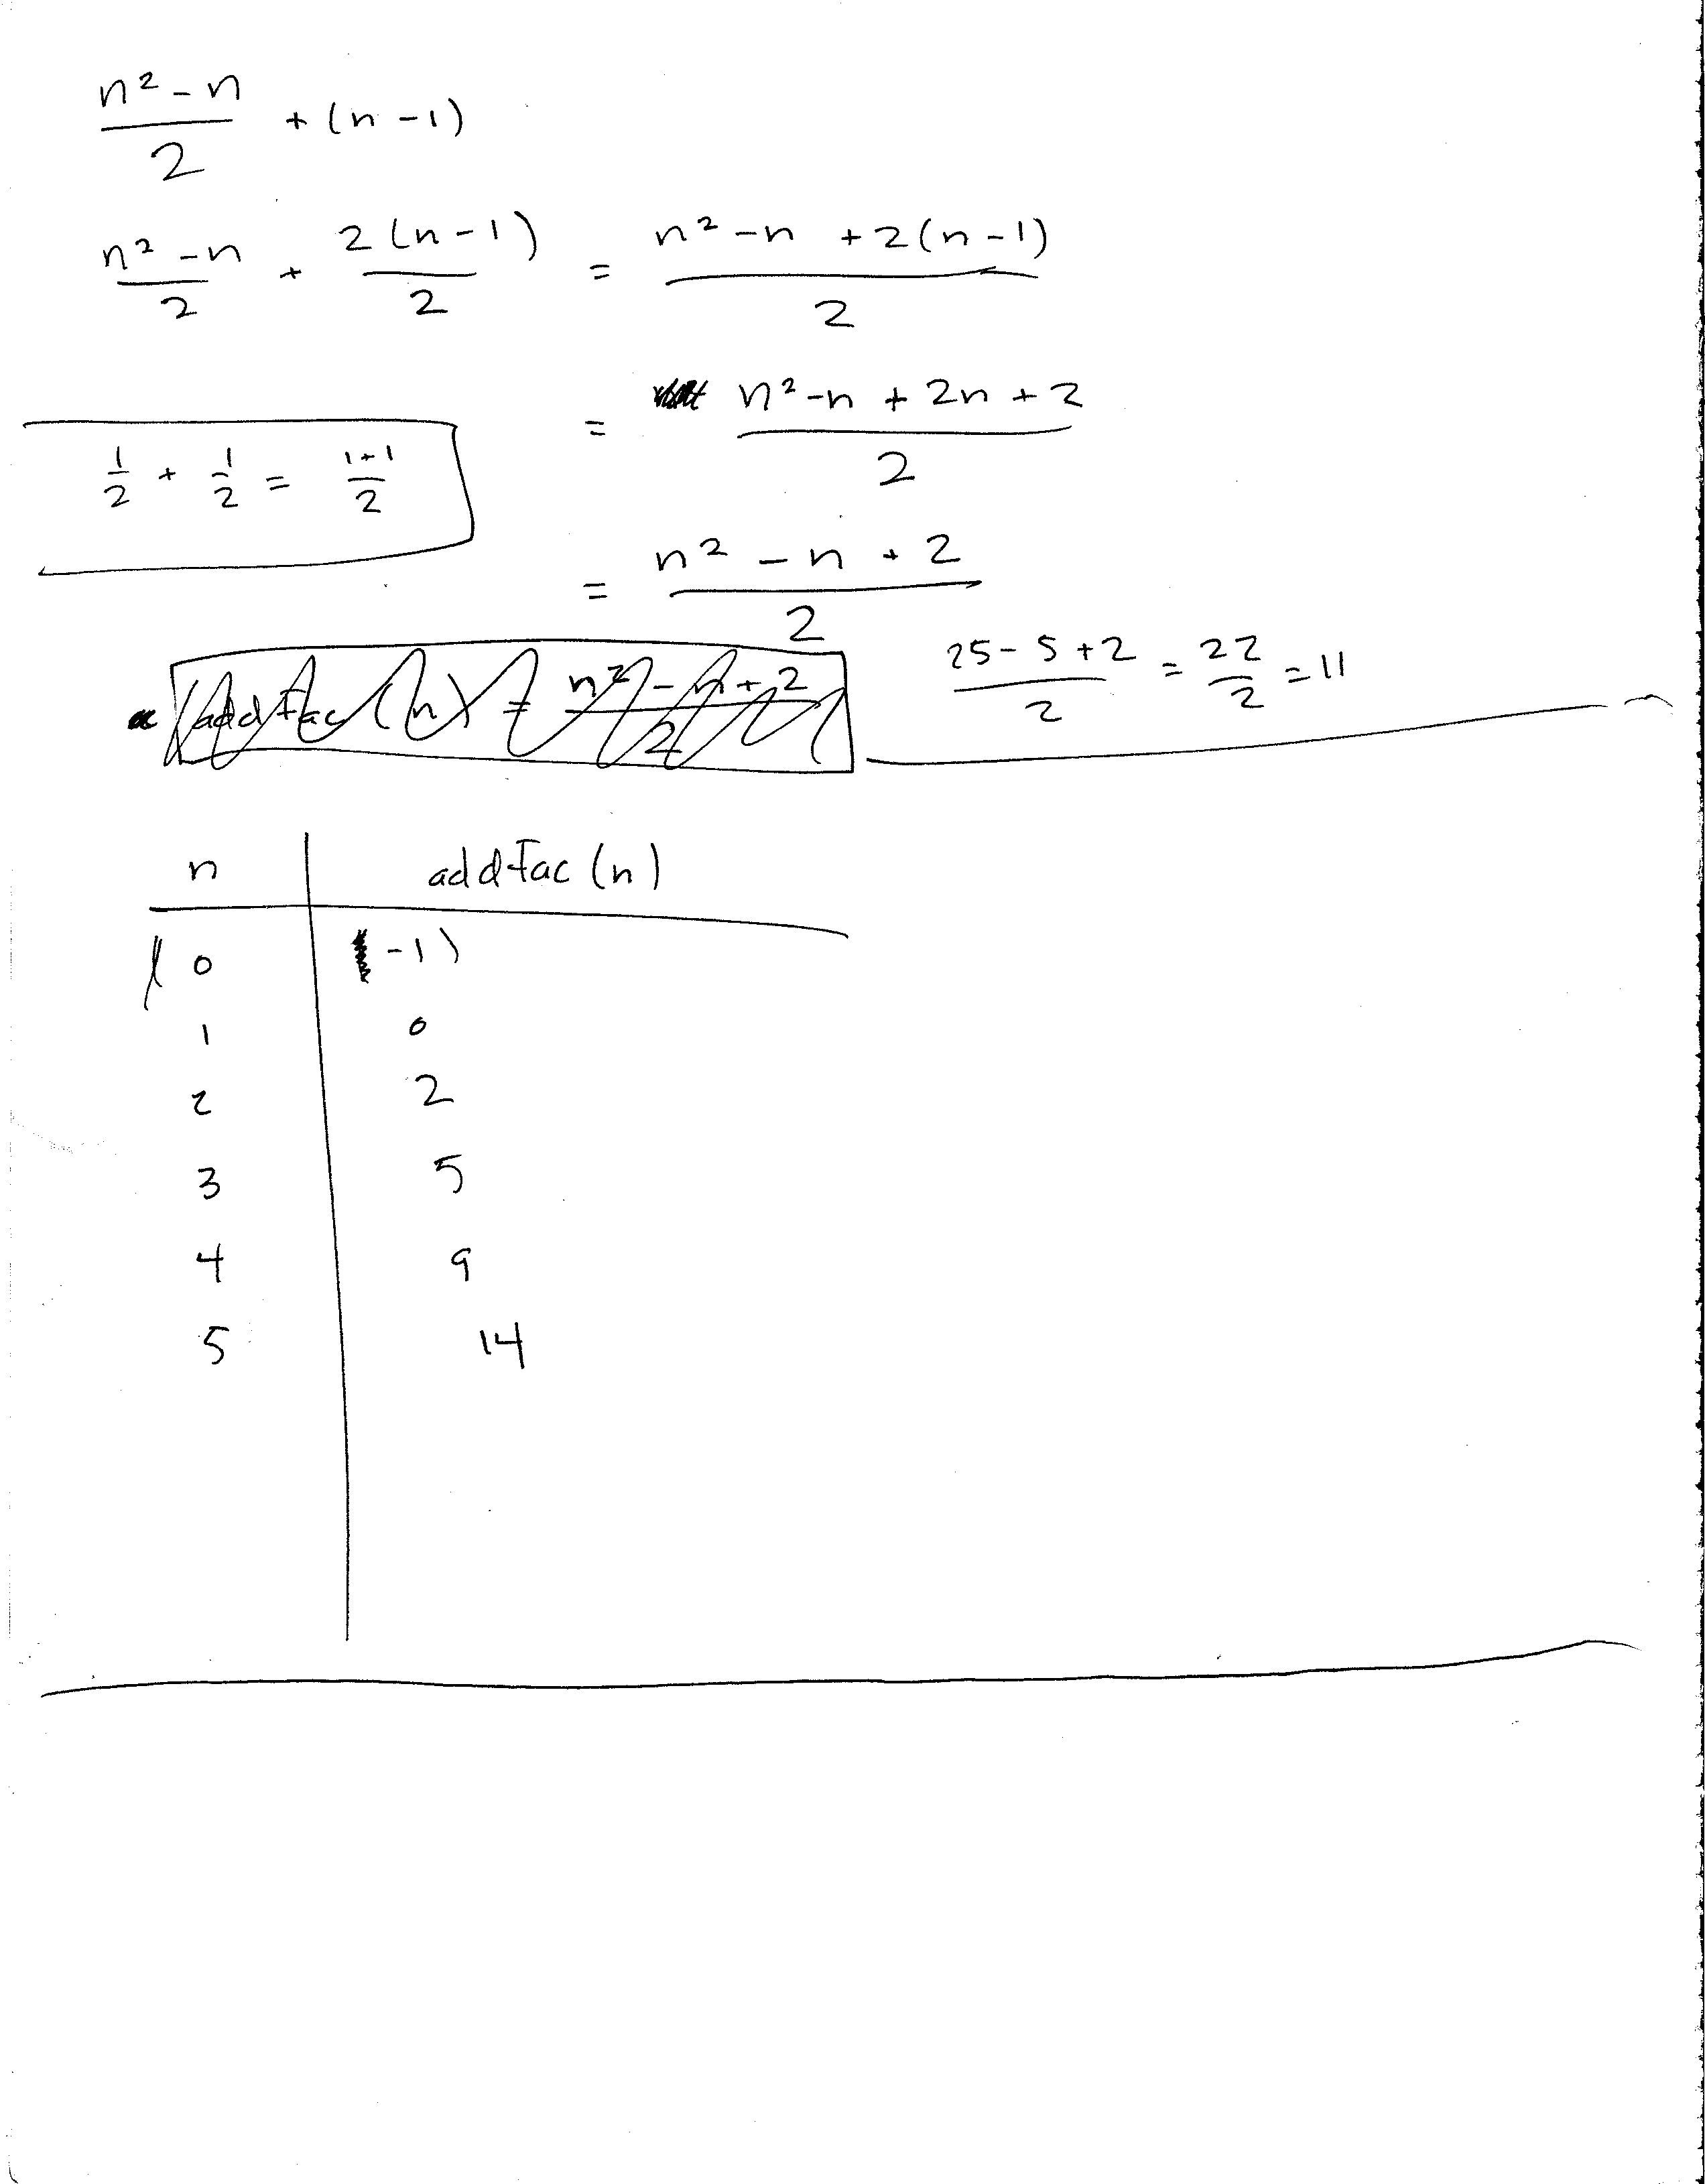 n² - n / 2 + (n - 1)
n² - n / 2 + 2(n - 1) / 2 = n² - n + 2(n - 1) / 2
= n² - n + 2n + 2 / 2
1/2 + 1/2 = 1+1 / 2
= n² - n + 2 / 2
addfac(n) = n² - n + 2 / 2
25 - 5 + 2 / 2 = 22 / 2 = 11
n addfac(n)
( 0 -1)
1 0
2 2
3 5
4 9
5 14